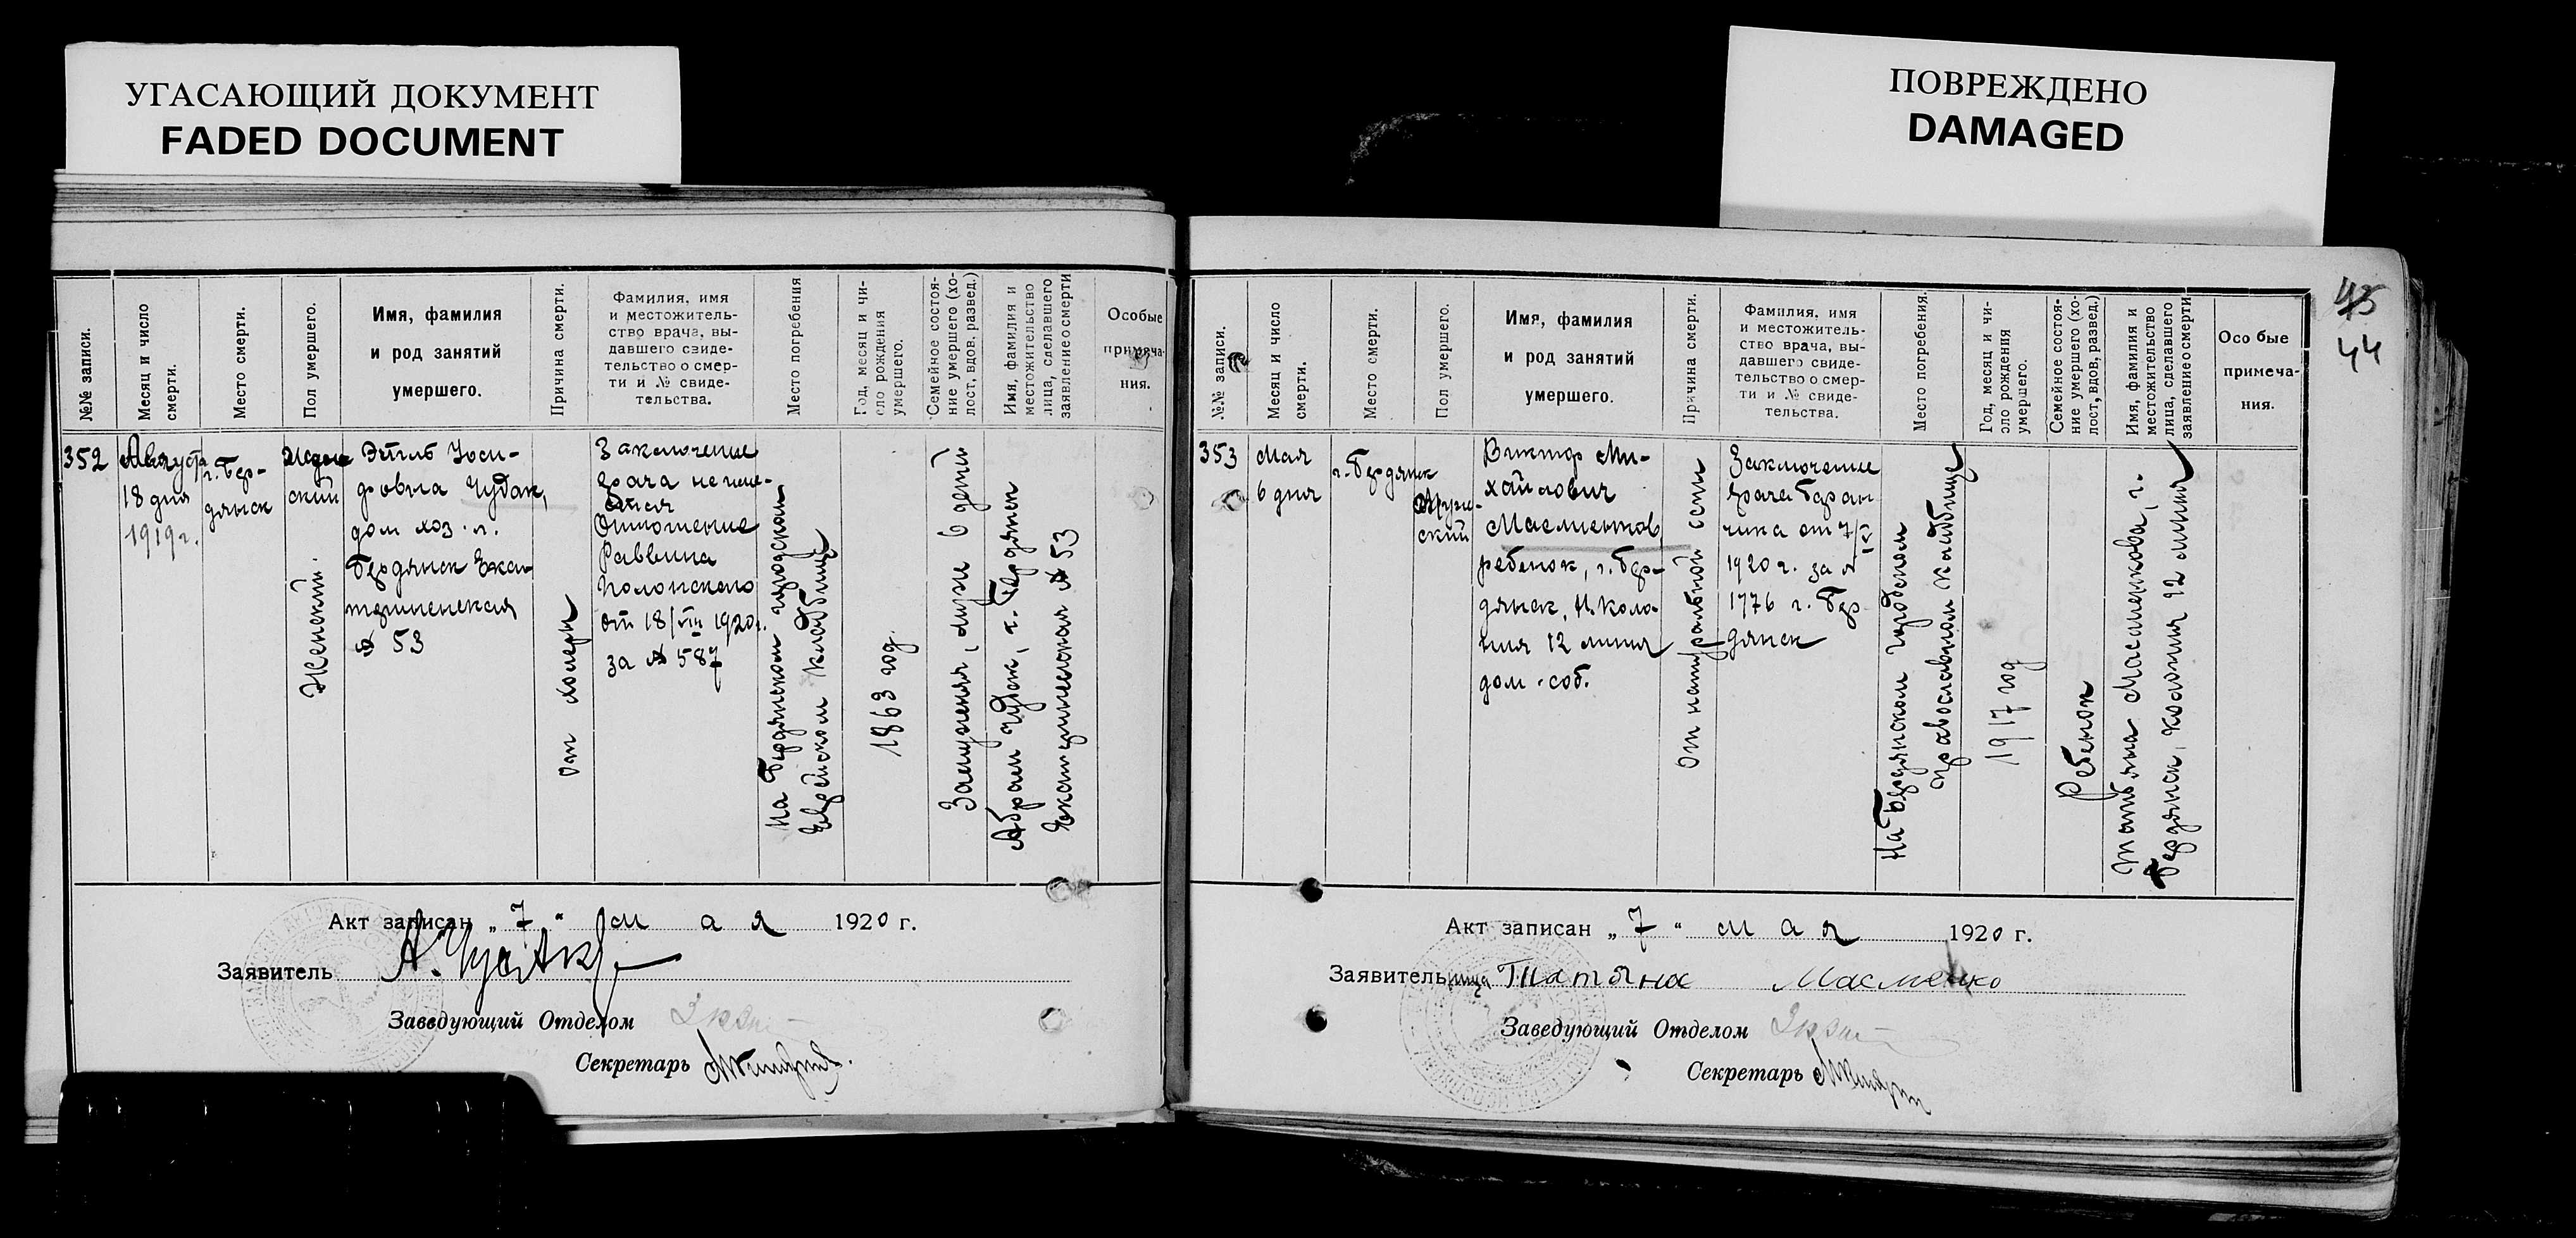 УГАСАЮЩИЙ ДОКУМЕНТ
FADED DOCUMENT
ПОВРЕЖДЕНО
DAMAGED
№№ записи.
Месяц и число
смерти.
Место смерти.
Пол умершего.
Имя, фамилия
и род занятий
умершего.
Причина смерти.
Фамилия, имя
и местожитель-
ство врача, вы-
давшего свиде-
тельство о смер-
ти и № свиде-
тельства.
Место погребения
Год, месяц и чи-
сло рождения
умершего.
Семейное состоя-
ние умершего (хо-
лост, вдов, развед.)
Имя, фамилия и
местожительство
лица, сделавшего
заявление о смерти
Особые
примеча-
ния.
352
Августа
18 дня
1919 г.
г. Бер-
дянск
ский
Женский.
Этль Иоси-
фовна Чудак,
дом хоз. г.
Бердянск Ека-
№ 53
от холеры
Заключение
врача не име-
ется
Отношение
Раввина
Полонского
от 18/VIII 1920 г.
за № 587
на Бердянском городском
Еврейском кладбище
1863 год.
Замужняя, мужа 6 детей
Абрам Чудак, г. Бердянск
№ 53
Акт записан „ 7 “ мая 1920 г.
Заявитель А. Чудак
Заведующий Отделом
Секретарь
45
44
№№ записи.
Месяц и число
смерти.
Место смерти.
Пол умершего.
Имя, фамилия
и род занятий
умершего.
Причина смерти.
Фамилия, имя
и местожитель-
ство врача, вы-
давшего свиде-
тельство о смер-
ти и № свиде-
тельства.
Место погребения.
Год, месяц и чи-
сло рождения
умершего.
Семейное состоя-
ние умершего (хо-
лост, вдов, развед.)
Имя, фамилия и
местожительство
лица, сделавшего
заявление о смерти
Особые
примеча-
ния.
353
Мая
6 дня
г. Бердянск
Мужс-
ский
Виктор Ми-
хайлович
Масленков
ребенок, г. Бер-
дянск, Н. Коло-
ния 12 линия
дом соб.
От натуральной оспы
Заключение
врача Баран
чика от 7/V
1920 г. за №
1776 г. Бер
дянск
На Бердянском городском
православном кладбище
1917 год
Ребенок
Татьяна Масленкова, г.
Бердянск, колония 12 линия
Акт записан „ 7 “ мая 1920 г.
Заявительница Татьяна Масленко
Заведующий Отделом
Секретарь